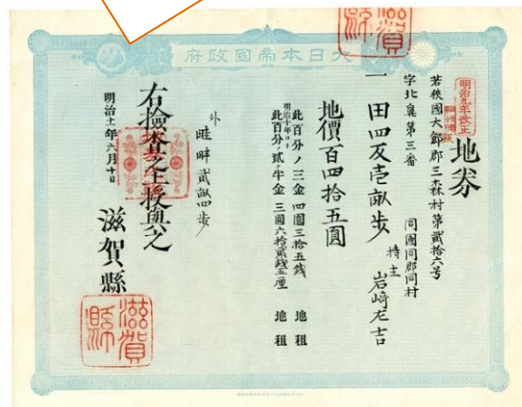 大日本帝國政府
明治九年改正
地券
若狹國大飯郡三森村第貳拾六号
字北 第三番 同國同郡同村
持主 岩﨑左吉
一田四反壱畝歩
地價百四拾五圓
此百分ノ三金四圓三拾五錢 地租
明治十年ヨリ
此百分ノ貳ヶ半金三圓六拾貳錢五厘 地租
外
畦畔貳畝四歩
右撿査之上授與之
明治十一年六月十日
滋賀縣